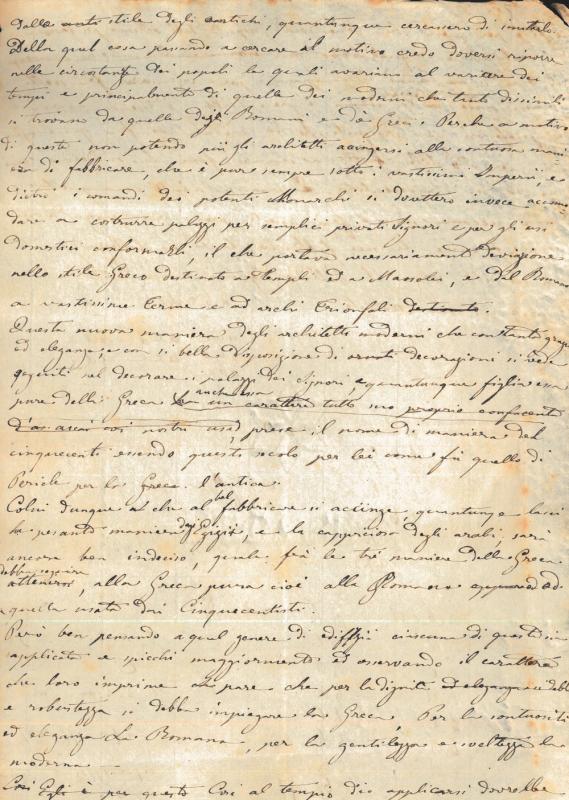 Dallo stile degli antichi, quantunque cercassero di imitarlo.
Della qual cosa passando a cercare il motivo credo doversi riporre
nelle circostanze dei popoli le quali avariano al variare dei
tempi e principalmente di quelle dei moderni che tanto dissimili
si trovano da quelle degli Romani e dei Greci. Perche a motivo
di queste non potendo più gli architetti accingersi alla sontuosa mani
era di fabbricare, che è pure sempre sotto i vastissimi Imperii, e
dietro i comandi dei potenti Monarchi si dovettero invece accomo
dare a costrurre palazzi per semplici privati Signori e per gli usi
domestici conformarli, il che portava necessariamente deviazione
nello stile Greco destinato a Templi ed a Mausolei, e dal Romano
a vastissime terme e ad archi trionfali destinato.
Questa nuova maniera degli architetti moderni che con tanta grazia
ed eleganza, e con si bella disposizione di ornate decorazioni si vede
nel decorare i palazzi dei Signori e quantunque figlia essa
pure della Greca anch'essa un carattere tutto suo proprio confacente
usi nostri, prese il nome di maniera del
cinquecento essendo questo secolo per lei come fu quello di
Pericle per la Greca. l'antica
Colui dunque che al bel fabbricare si accinge, quantunque lasci
la pesante maniera degli Egizii, e la capricciosa degli arabi, sarà
ancora ben indeciso, quale fra le tre maniere della Greca
debba seguire
attenersi, alla Greca pura cioè alla Romana oppure ad
quella usata dai Cinquecentisti.
Però ben pensando a qual genere di edifizii ciascuna di queste sia
applicata e spicchi maggiormente ed osservando il carattere
che loro imprime pare che per la dignità ed eleganza
e robustezza si debba impiegare la Greca, Per la sontuosità
ed eleganza La Romana, per la gentilezza e sveltezza la
moderna
Così Egli è per questo Così al tempio dio applicarsi dovrebbe